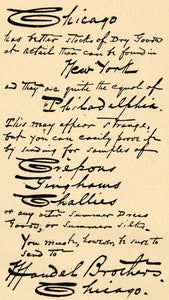 Chicago
has better stocks of Dry Goods
at Retail than can be found in
New York
and they are quite the equal of
Philadelphia.
This may appear strange,
but you can easily prove it
by sending for samples of
Crépons
Ginghams
Challies
or any other Summer Dress
Goods, or Summer Silks.
You must, however, be sure to
send to
Mandel Brothers.
Chicago.